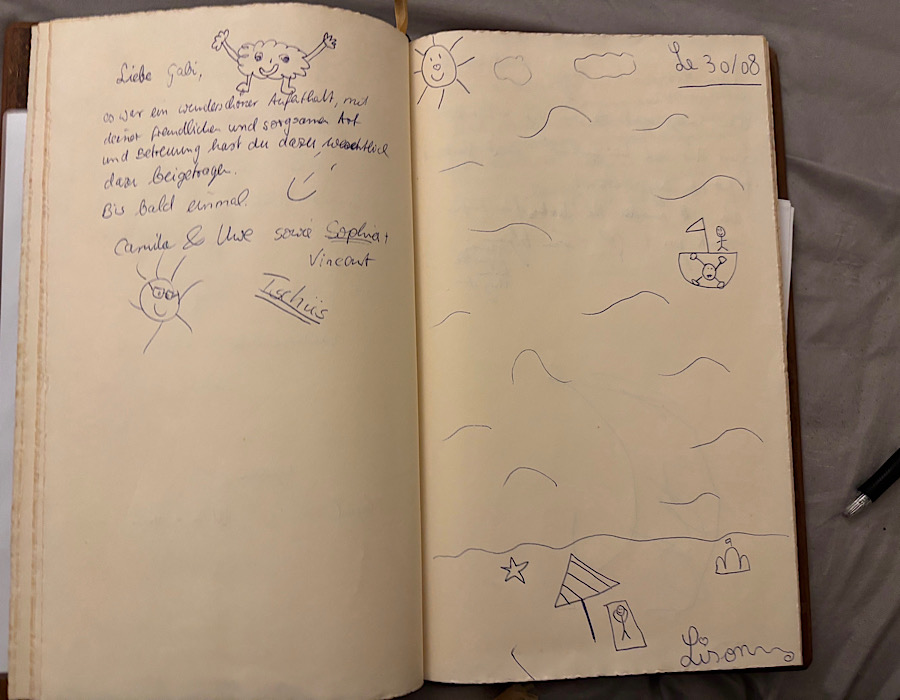 Liebe Gabi,
es war ein wunderschöner Aufenthalt, mit
deiner freundlichen und sorgsamen Art
und Betreuung hast du dazu wesentlich
dazu beigetragen.
Bis bald einmal.
Camila & Uwe sowie Sophia +
Vincent
Tschüs
Le 30/08
Lison